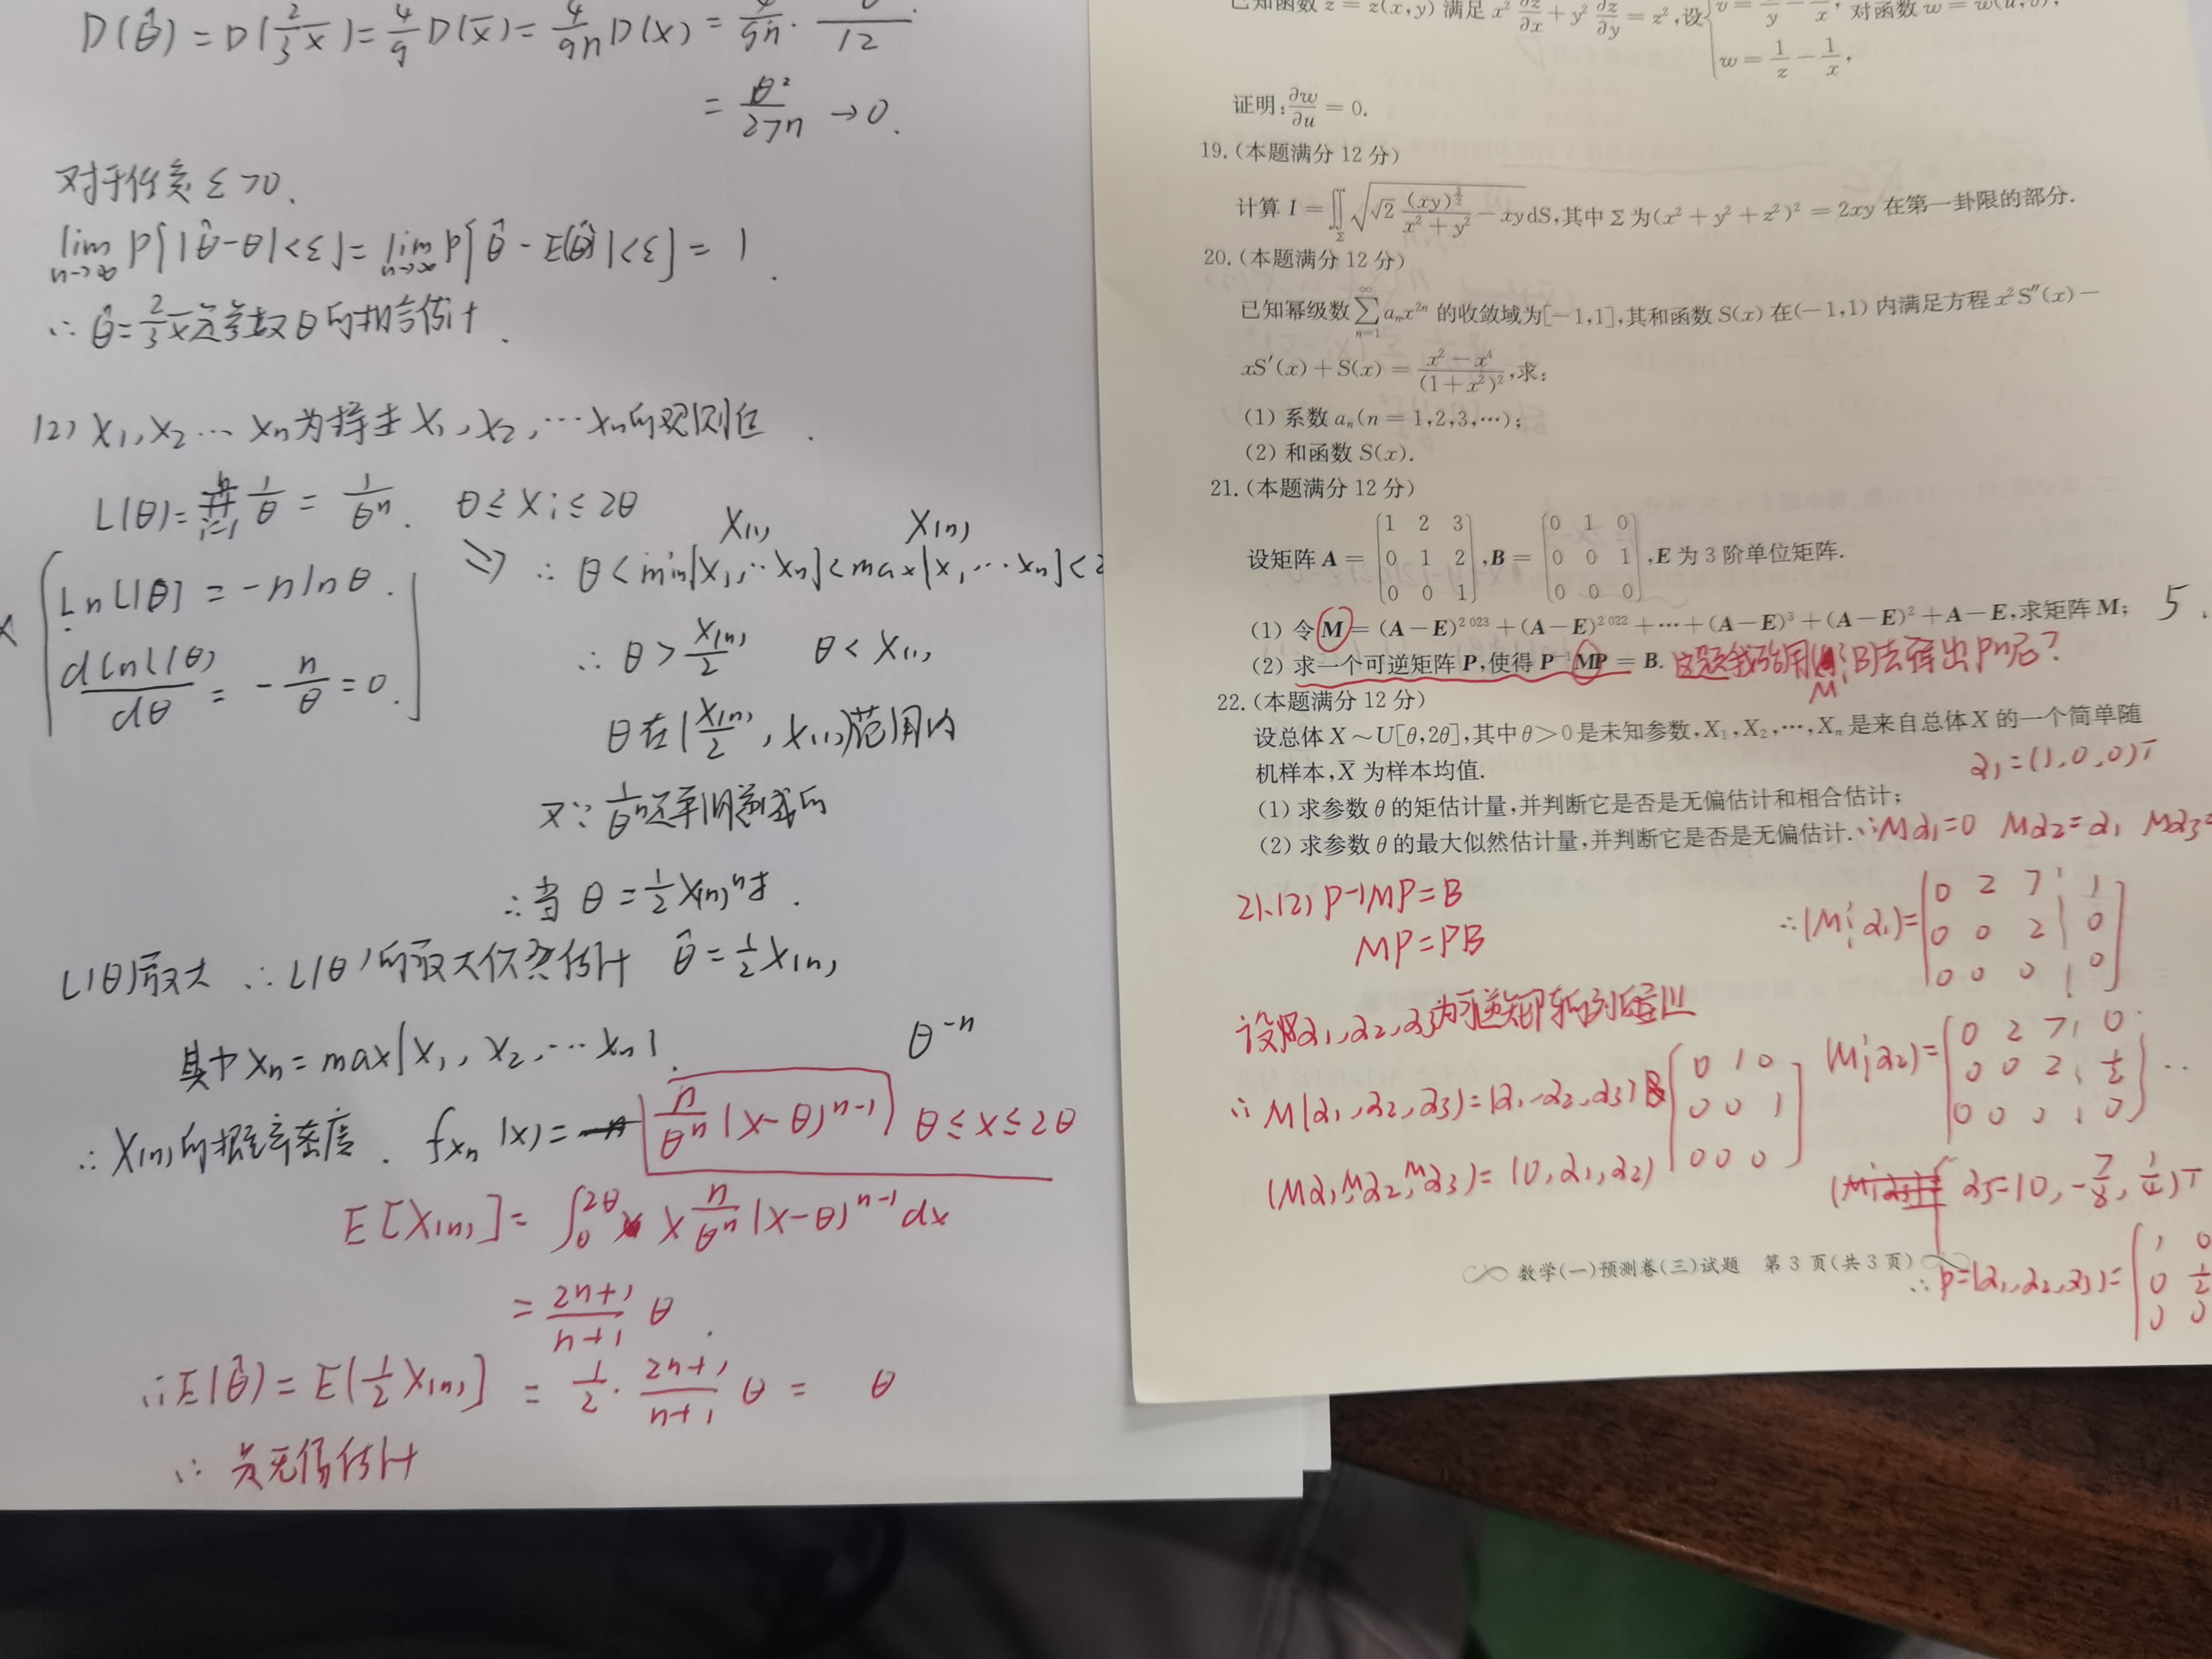 D(θ̂) = D(2/3 x̄) = 4/9 D(x̄) = 4/9n D(x) = 4/9n · /12
= θ²/27n → 0.
对于任意 ε>0.
lim n→∞ P{|θ̂-θ|<ε} = lim n→∞ P{θ̂-E(θ̂)|<ε} = 1.
∴ θ̂ = 2/3 x̄ 是参数 θ 的相合估计.
(2) X₁, X₂ … Xn 为样本 X₁, X₂, … Xn 的观测值.
L(θ) = ∏ i=1 n 1/θ = 1/θⁿ. θ ≤ Xi ≤ 2θ
X(1) X(n)
Ln L(θ) = -n ln θ.
⇒ ∴ θ < min{X₁, … Xn} < max{X₁ … Xn} < 2
d Ln L(θ)/dθ = -n/θ = 0.
∴ θ > X(n)/2 θ < X(1)
θ 在 (X(n)/2, X(1)) 范围内
又∵ 1/θⁿ 是单调递减的
∴ 当 θ = 1/2 X(n) 时.
L(θ) 最大 ∴ L(θ) 的最大似然估计 θ̂ = 1/2 X(n)
其中 Xn = max{X₁, X₂, … Xn}.
θ⁻ⁿ
∴ X(n) 的概率密度. fxn(x) = n/θⁿ (x-θ)ⁿ⁻¹ θ ≤ x ≤ 2θ
E[X(n)] = ∫ 2θ θ x n/θⁿ (x-θ)ⁿ⁻¹ dx
= 2n+1/n+1 θ.
∴ E(θ̂) = E[1/2 X(n)] = 1/2 · 2n+1/n+1 θ = θ
∴ 为无偏估计
已知函数 z = z(x,y) 满足 x² ∂z/∂x + y² ∂z/∂y = z², 设 v = 1/y - 1/x, 对函数 w = w(u,v),
w = 1/z - 1/x,
证明: ∂w/∂u = 0.
19. (本题满分 12 分)
计算 I = ∬Σ √(√2 (xy)^(3/2)/(x²+y²) - xy) dS, 其中 Σ 为 (x²+y²+z²)² = 2xy 在第一卦限的部分.
20. (本题满分 12 分)
已知幂级数 ∑ n=1 ∞ aₙx²ⁿ 的收敛域为[-1,1], 其和函数 S(x) 在(-1,1) 内满足方程 x²S″(x) -
xS′(x) + S(x) = (x²-x⁴)/(1+x²)², 求:
(1) 系数 aₙ(n = 1,2,3,…);
(2) 和函数 S(x).
21. (本题满分 12 分)
设矩阵 A = [1 2 3; 0 1 2; 0 0 1], B = [0 1 0; 0 0 1; 0 0 0], E 为 3 阶单位矩阵.
(1) 令 M = (A-E)²⁰²³ + (A-E)²⁰²² + … + (A-E)³ + (A-E)² + A-E, 求矩阵 M; 5.
(2) 求一个可逆矩阵 P, 使得 P⁻¹MP = B. 这题能用(M¦B)去得出P吗?
M
22. (本题满分 12 分)
设总体 X ~ U[θ,2θ], 其中 θ>0 是未知参数, X₁, X₂, …, Xₙ 是来自总体 X 的一个简单随
机样本, X̄ 为样本均值.
(1) 求参数 θ 的矩估计量, 并判断它是否是无偏估计和相合估计;
(2) 求参数 θ 的最大似然估计量, 并判断它是否是无偏估计.
α₁ = (1,0,0)ᵀ
∴ Mα₁=0 Mα₂=α₁ Mα₃=
21.(2) P⁻¹MP = B
MP = PB
∴ (M¦α₁) = [0 2 7 ¦ 1; 0 0 2 ¦ 0; 0 0 0 ¦ 0]
设 α₁, α₂, α₃ 为可逆矩阵的列向量
(M¦α₂) = [0 2 7 ¦ 0; 0 0 2 ¦ 1/2; 0 0 0 ¦ 0] ..
∴ M(α₁, α₂, α₃) = (α₁, α₂, α₃) [0 1 0; 0 0 1; 0 0 0]
(Mα₁, Mα₂, Mα₃) = (0, α₁, α₂)
α₃ = (0, -7/8, 1/4)ᵀ
∴ P = (α₁, α₂, α₃) = [1 0; 0 1/2; 0 0
数学(一)预测卷(三)试题 第 3 页(共 3 页)